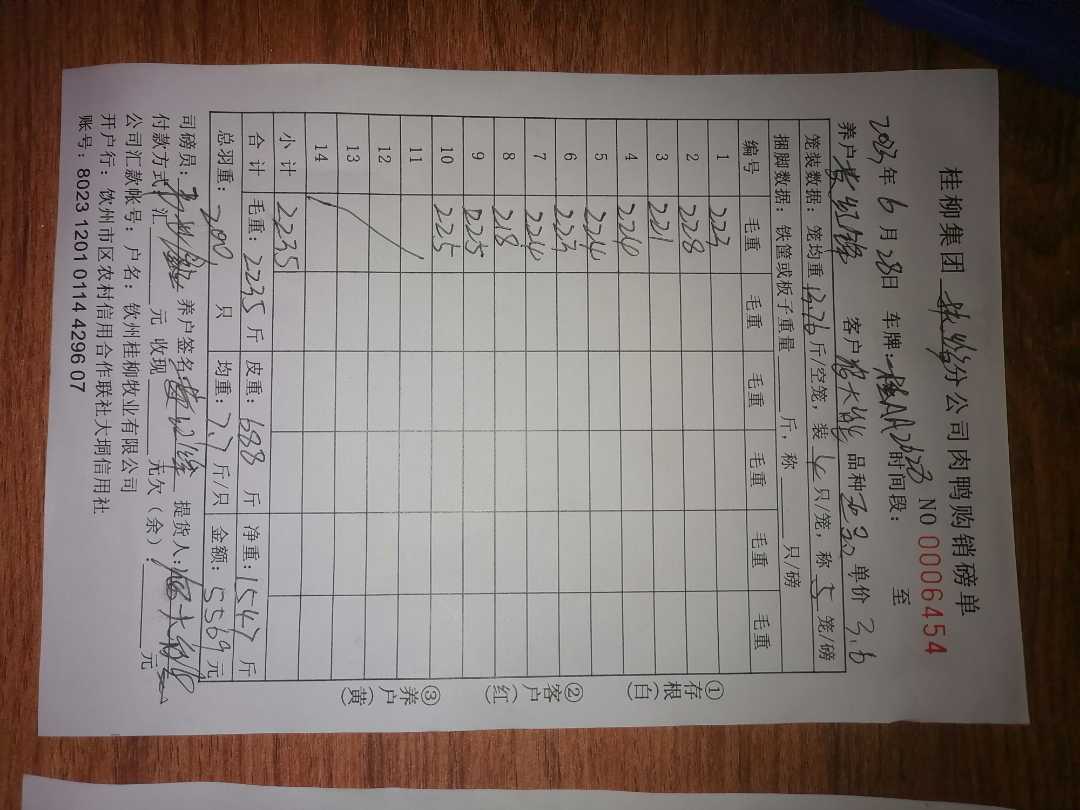 桂柳集团 分公司肉鸭购销磅单
NO 0006454
2023年6月28日 车牌:桂AA2623 时间段: 至
养户 黄红锋 客户 大能 品种 单价 3.6
笼装数据:笼均重13.76斤/空笼,装4只/笼,称5笼/磅
捆脚数据:铁筐或板子重量 斤,称 只/磅
编号 毛重 毛重 毛重 毛重 毛重 毛重
1 223
2 228
3 221
4 224
5 224
6 223
7 224
8 218
9 225
10 225
11
12
13
14
小计 2235
合计 毛重:2235斤 皮重:688斤 净重:1547斤
总羽重:200只 均重:7.7斤/只 金额:5569元
司磅员: 养户签名 黄红锋 提货人: 大能
付款方式:汇 元 收现 元欠(余): 元
公司汇款帐号:户名:钦州桂柳牧业有限公司
开户行:钦州市区农村信用合作联社大垌信用社
账号:8023 1201 0114 4296 07
①存根(白)
②客户(红)
③养户(黄)